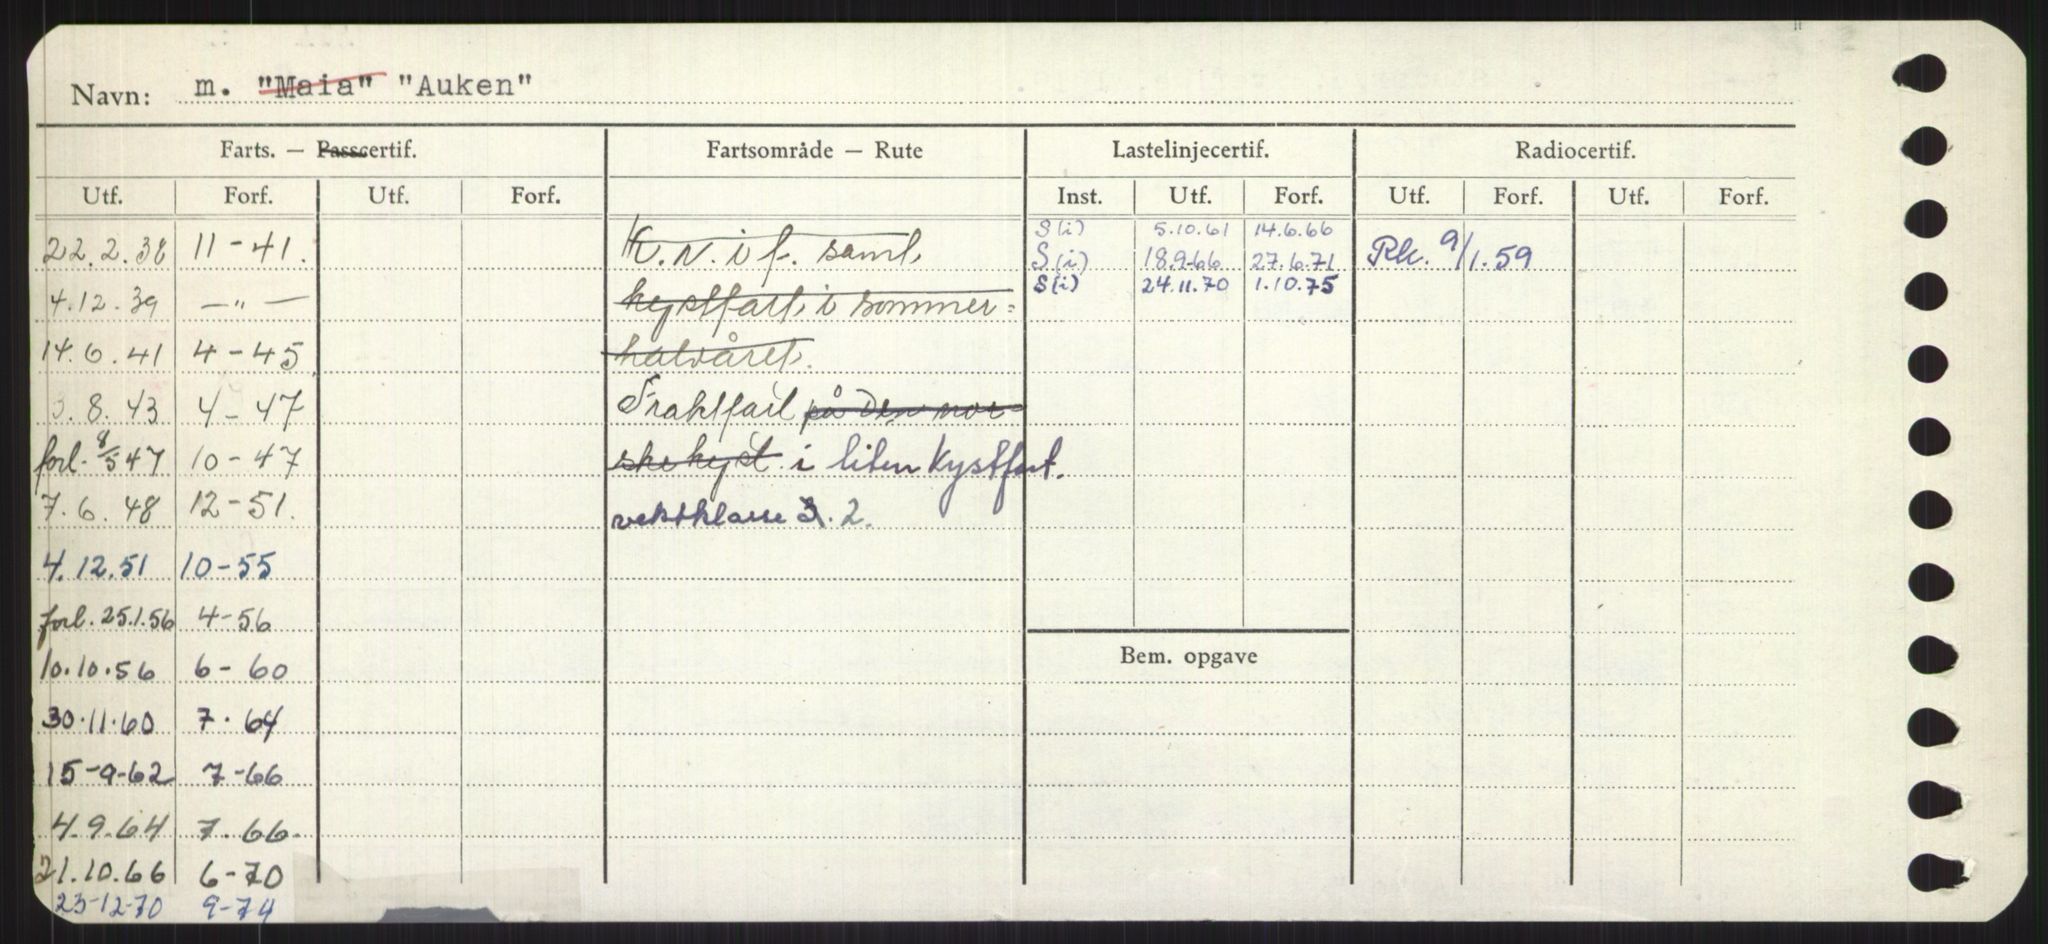 Navn: m. "Maia" "Auken"
Farts. — Passcertif. Fartsområde — Rute Lastelinjecertif. Radiocertif.
Utf. Forf. Utf. Forf. Inst. Utf. Forf. Utf. Forf. Utf. Forf.
S(i) 5.10.61 14.6.66
22.2.38 11-41. K.N. i f. samt
S(i) 18.9.66 27.6.71 Rk. 9/1.59
S(i) 24.11.70 1.10.75
4.12.39 —"— kystfart i sommer=
14.6.41 4-45 halvåret.
3.8.43 4-47 Fraktfart på den nor-
forl. 8/5 47 10-47 ske kyst i liten kystfart.
7.6.48 12-51. vektklasse 2.
4.12.51 10-55
forl. 25.1.56 4-56
10.10.56 6-60
Bem. opgave
30.11.60 7.64
15-9-62 7-66
4.9.64 7.66.
21.10.66 6-70
23-12-70 9-74